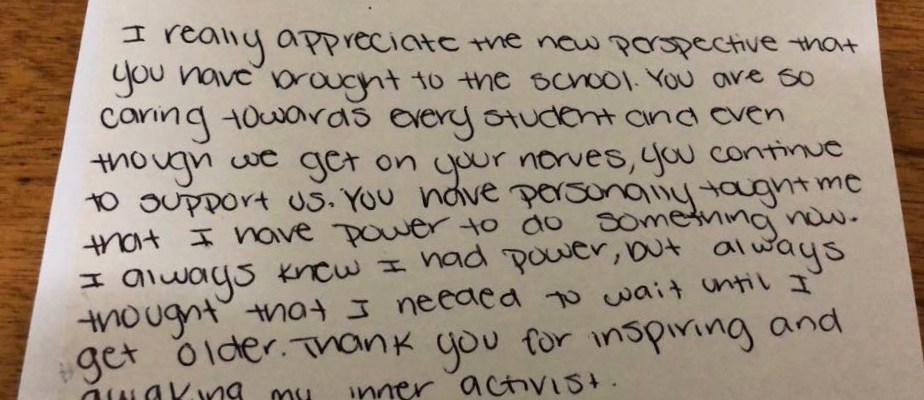 I really appreciate the new perspective that
you have brought to the school. You are so
caring towards every student and even
though we get on your nerves, you continue
to support us. You have personally taught me
that I have power to do something now.
I always knew I had power, but always
thought that I needed to wait until I
get older. Thank you for inspiring and
awaking my inner activist.